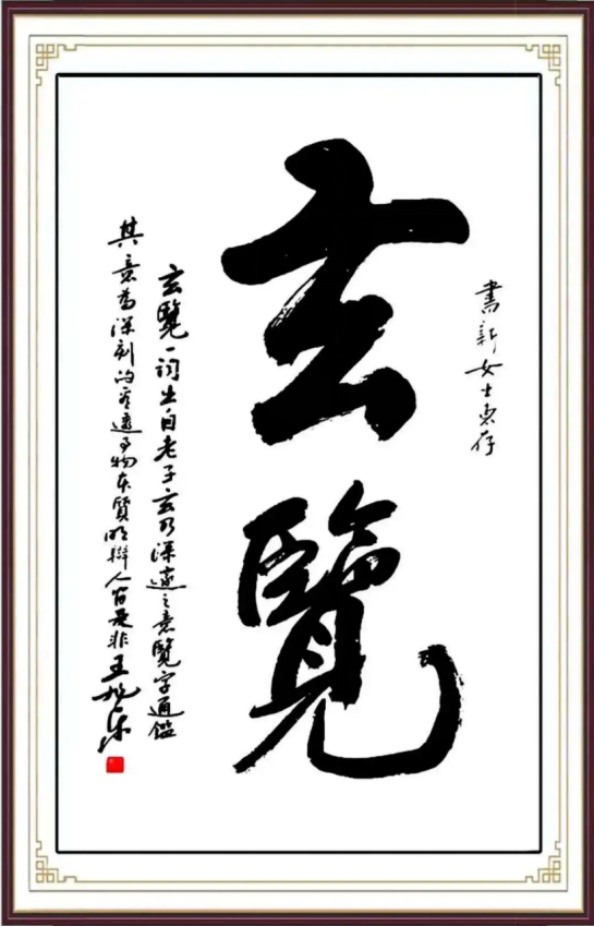 書新女士惠存
玄覽
玄覽一詞出自老子玄乃深遠之意覽字通鑑
其意為深刻的看透事物本質明辯人間是非王旭